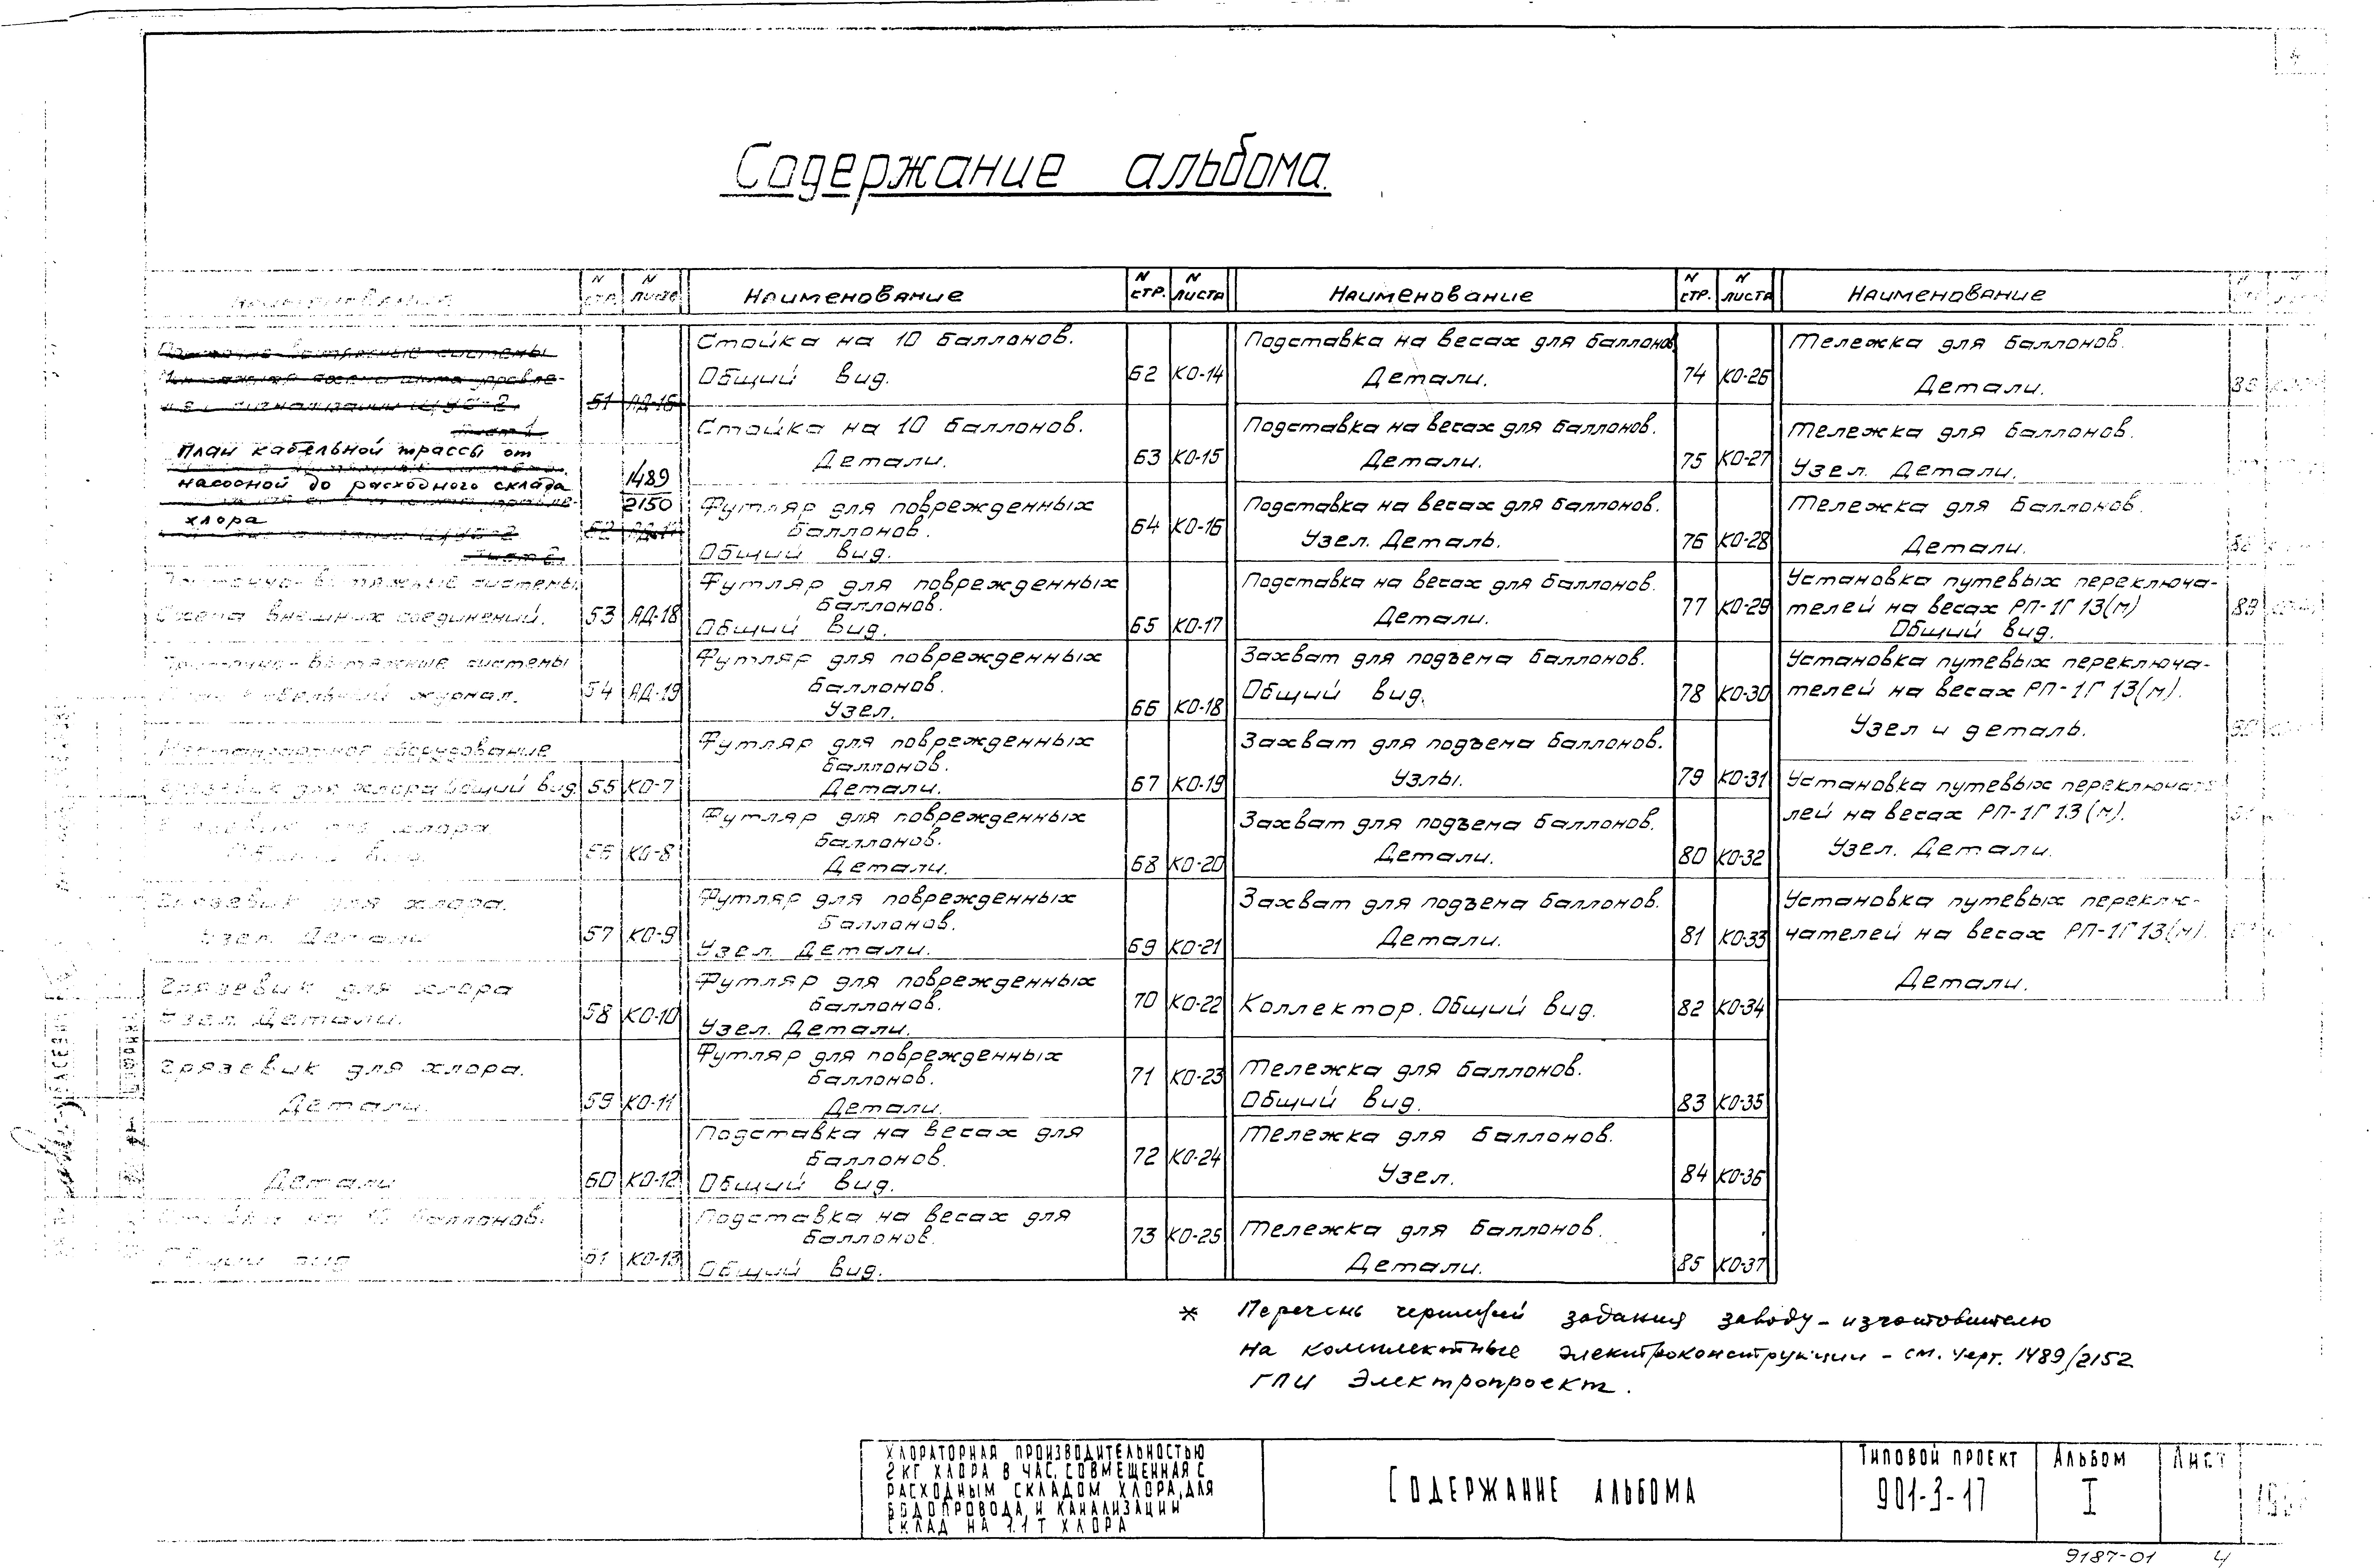 Содержание альбома.
N стр.
N листа
Наименование
N стр.
N листа
Наименование
N стр.
N листа
Наименование
51 АД-16
План кабельной трассы от
насосной до расходного склада
хлора
1489
2150
Приточно-вытяжные системы
Схема внешних соединений. 53 АД-18
Приточно-вытяжные системы
журнал. 54 АД-19
Нестандартное оборудование
Грязевик для хлора Общий вид. 55 КО-7
Грязевик для хлора.
Общий вид. 56 КО-8
Грязевик для хлора.
Узел. Детали 57 КО-9
Грязевик для хлора
Узел. Детали. 58 КО-10
Грязевик для хлора.
Детали. 59 КО-11
Детали 60 КО-12
Стойка на 10 баллонов.
Общий вид 61 КО-13
Стойка на 10 баллонов.
Общий вид. 62 КО-14
Стойка на 10 баллонов.
Детали. 63 КО-15
Футляр для поврежденных
баллонов. 64 КО-16
Общий вид.
Футляр для поврежденных
баллонов.
Общий вид. 65 КО-17
Футляр для поврежденных
баллонов.
Узел. 66 КО-18
Футляр для поврежденных
баллонов.
Детали. 67 КО-19
Футляр для поврежденных
баллонов.
Детали. 68 КО-20
Футляр для поврежденных
баллонов.
Узел. Детали. 69 КО-21
Футляр для поврежденных
баллонов. 70 КО-22
Узел. Детали.
Футляр для поврежденных
баллонов. 71 КО-23
Детали.
Подставка на весах для
баллонов. 72 КО-24
Общий вид.
Подставка на весах для
баллонов. 73 КО-25
Общий вид.
Подставка на весах для баллонов
Детали. 74 КО-26
Подставка на весах для баллонов.
Детали. 75 КО-27
Подставка на весах для баллонов.
Узел. Деталь. 76 КО-28
Подставка на весах для баллонов.
Детали. 77 КО-29
Захват для подъема баллонов.
Общий вид. 78 КО-30
Захват для подъема баллонов.
Узлы. 79 КО-31
Захват для подъема баллонов.
Детали. 80 КО-32
Захват для подъема баллонов.
Детали. 81 КО-33
Коллектор. Общий вид. 82 КО-34
Тележка для баллонов.
Общий вид. 83 КО-35
Тележка для баллонов.
Узел. 84 КО-36
Тележка для баллонов.
Детали. 85 КО-37
Тележка для баллонов.
Детали.
Тележка для баллонов.
Узел. Детали.
Тележка для баллонов.
Детали.
Установка путевых переключа-
телей на весах РП-1Г 13(м) 89
Общий вид.
Установка путевых переключа-
телей на весах РП-1Г 13(м).
Узел и деталь.
Установка путевых переключате-
лей на весах РП-1Г 13(м).
Узел. Детали.
Установка путевых переклю-
чателей на весах РП-1Г 13(м).
Детали.
* Перечень чертежей задания заводу-изготовителю
на комплектные электроконструкции - см. черт. 1489/2152
ГПИ Электропроект.
Хлораторная производительностью
2 кг хлора в час, совмещенная с
расходным складом хлора, для
водопровода и канализации
Склад на 1.1 т хлора
Содержание альбома
Типовой проект
901-3-17
Альбом
I
Лист
9187-01 4